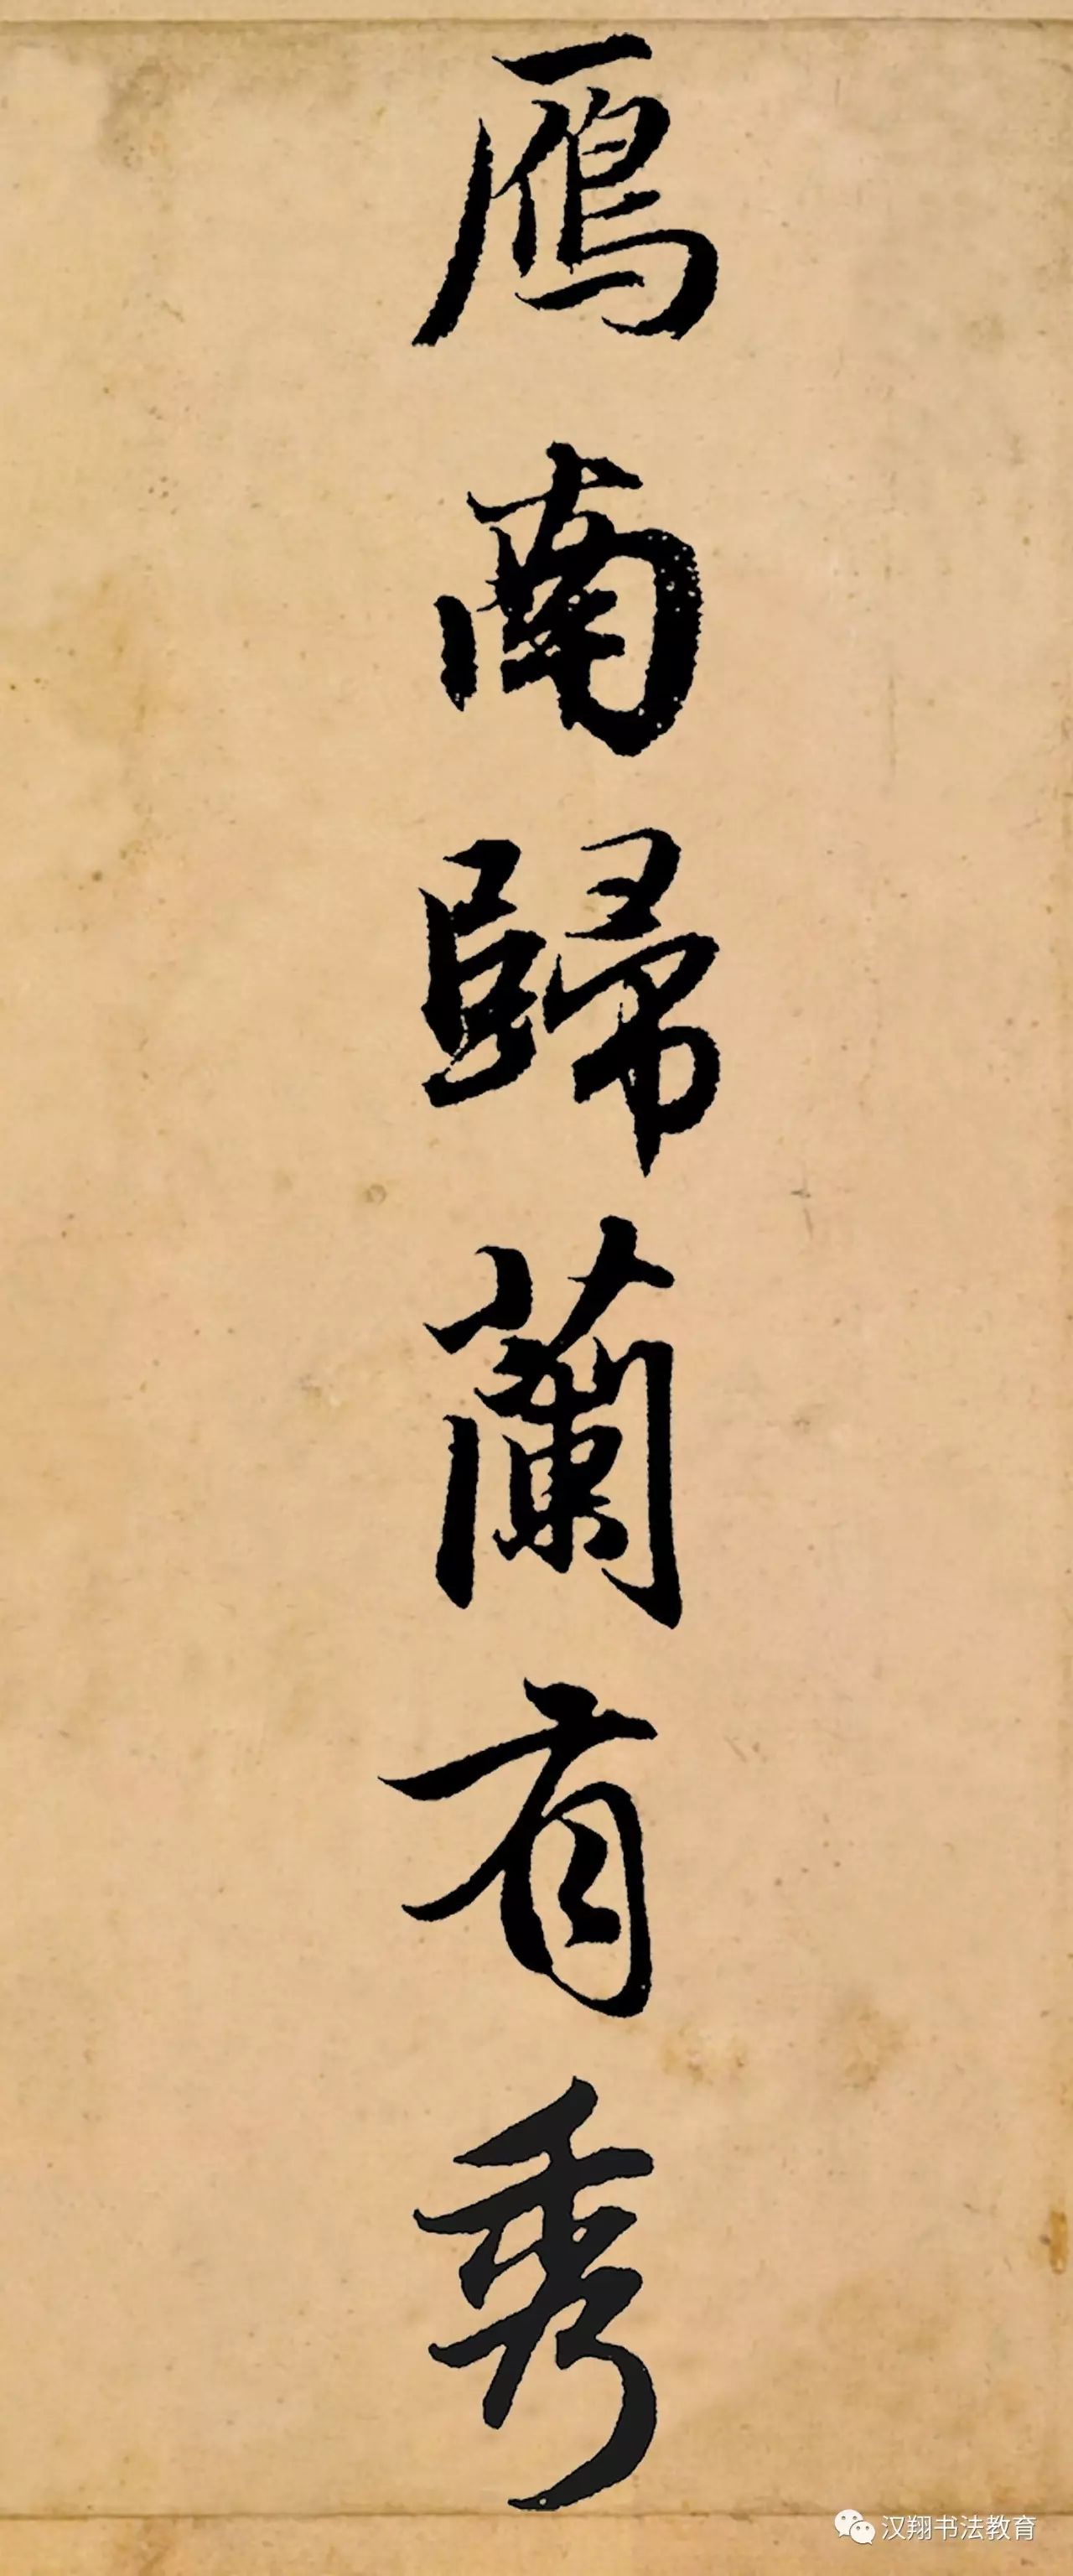 鴈南歸蘭有秀
汉翔书法教育